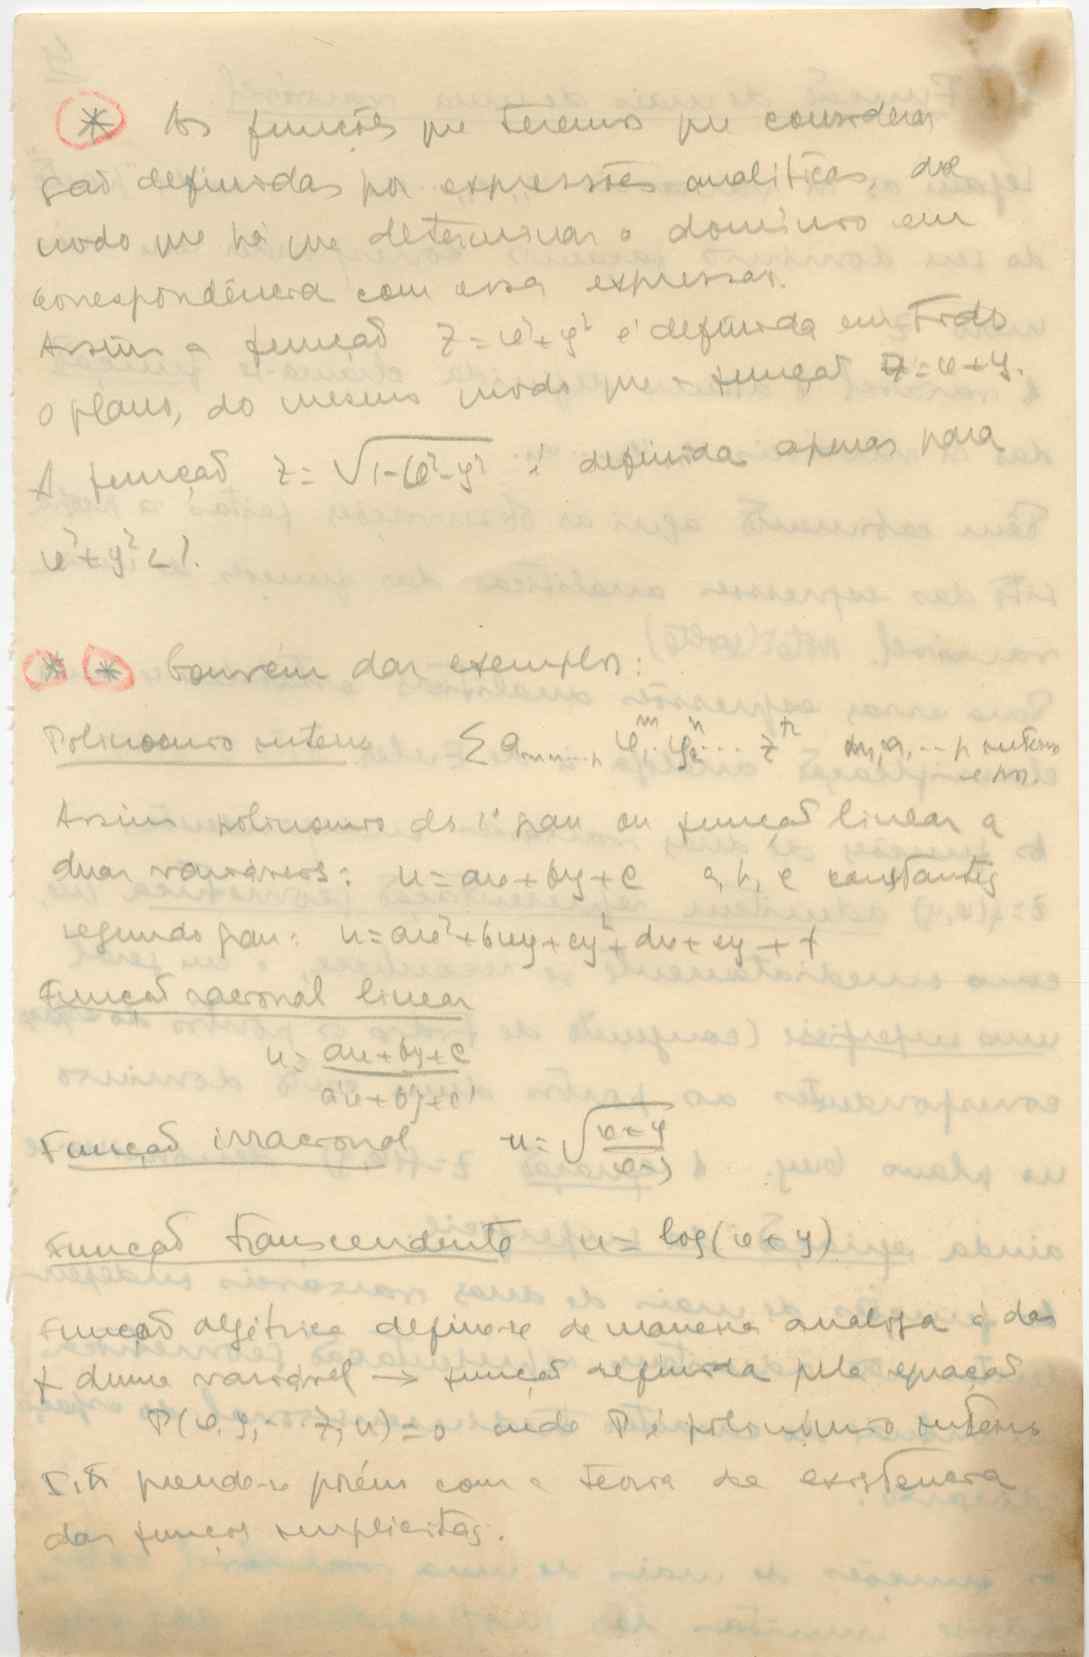 * As funções que teremos que considerar
são definidas por expressões analíticas, de
modo que há que determinar o domínio em
correspondência com essa expressão.
Assim a função z = x² + y² é definida em todo
o plano, do mesmo modo que a função z = x + y.
A função z = √(1-x²-y²) é definida apenas para
x² + y² < 1.
* * Convém dar exemplos:
Polinómio inteiro Σ a m n ... p x^m y^n ... z^p m, n, ... p inteiros
e pos.
Assim polinómio do 1º grau ou função linear a
duas variáveis: u = ax + by + c a, b, c constantes
segundo grau: u = ax² + bxy + cy² + dx + ey + f
Função racional linear
u = (ax + by + c)/(a'x + b'y + c')
Função irracional u = √((x+y)/(x-y))
Função transcendente u = log(x + y)
Função algébrica define-se de maneira análoga à das
f duma variável → função definida pela equação
P(x, y, ... z, u) = 0 onde P é polinómio inteiro
Isto prende-se porém com a teoria da existência
das funções implícitas.